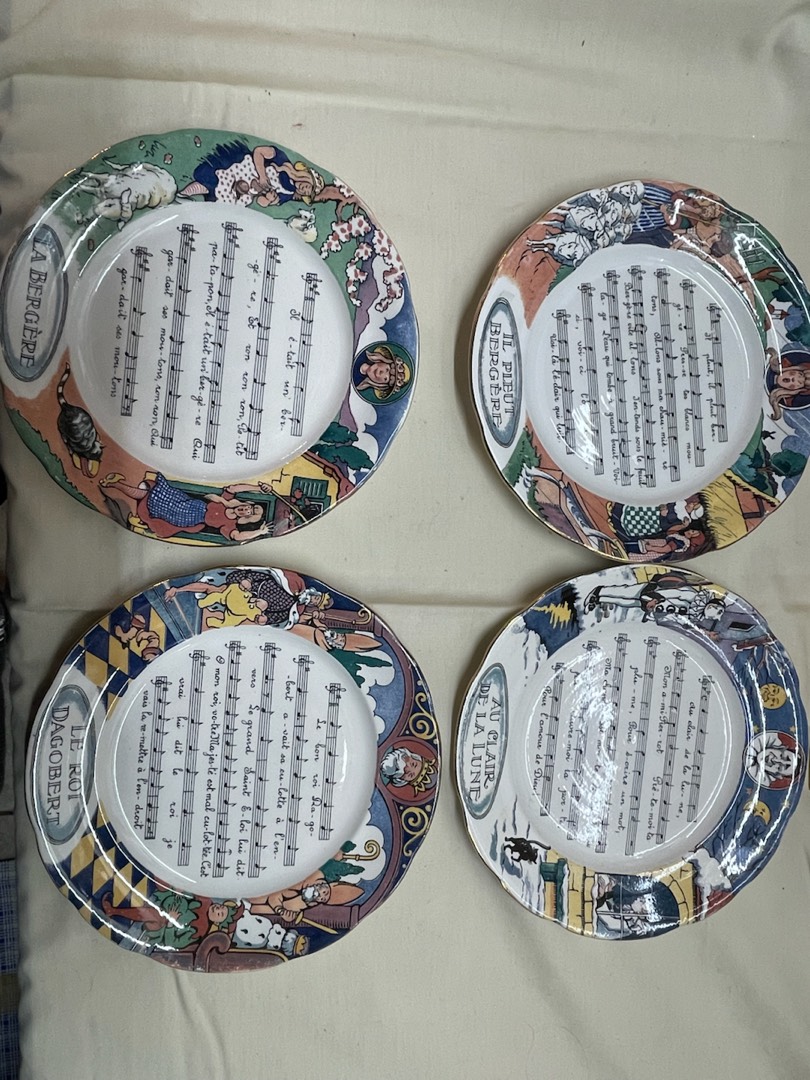 Il pleut, il pleut ber-
gè - re Pres-se tes blancs mou-
tons, Allons sous ma chau-miè-re
Ber-gère vite al-lons J'en-tends sous le feuil-
la-ge L'eau qui tombe à grand bruit - Voi-
ci, voi-ci
Voi-là l'é-clair qui luit
IL PLEUT
BERGÈRE
Au clair de la lu-ne,
Mon a-mi Pier-rot Prê-te-moi ta
plu-me, Pour é-crire un mot,
Ma
ouvre-moi ta por-te
Pour l'amour de Dieu
AU CLAIR
DE LA LUNE
Il é-tait un' ber-
-gè-re, Et ron ron ron, Pe-tit
pa-ta-pon, Il é-tait un' ber-gè-re Qui
gar-dait ses mou-tons, ron, ron, Qui
gar-dait ses mou-tons
LA BERGÈRE
Le bon roi Da-go-
-bert a-vait sa cu-lotte à l'en-
vers Le grand Saint É-loi lui dit
O mon roi, vo-tre Ma-jes-té est mal cu-lot-tée C'est
vrai lui dit le roi je
vais la re-mettre à l'en-droit
LE ROI
DAGOBERT